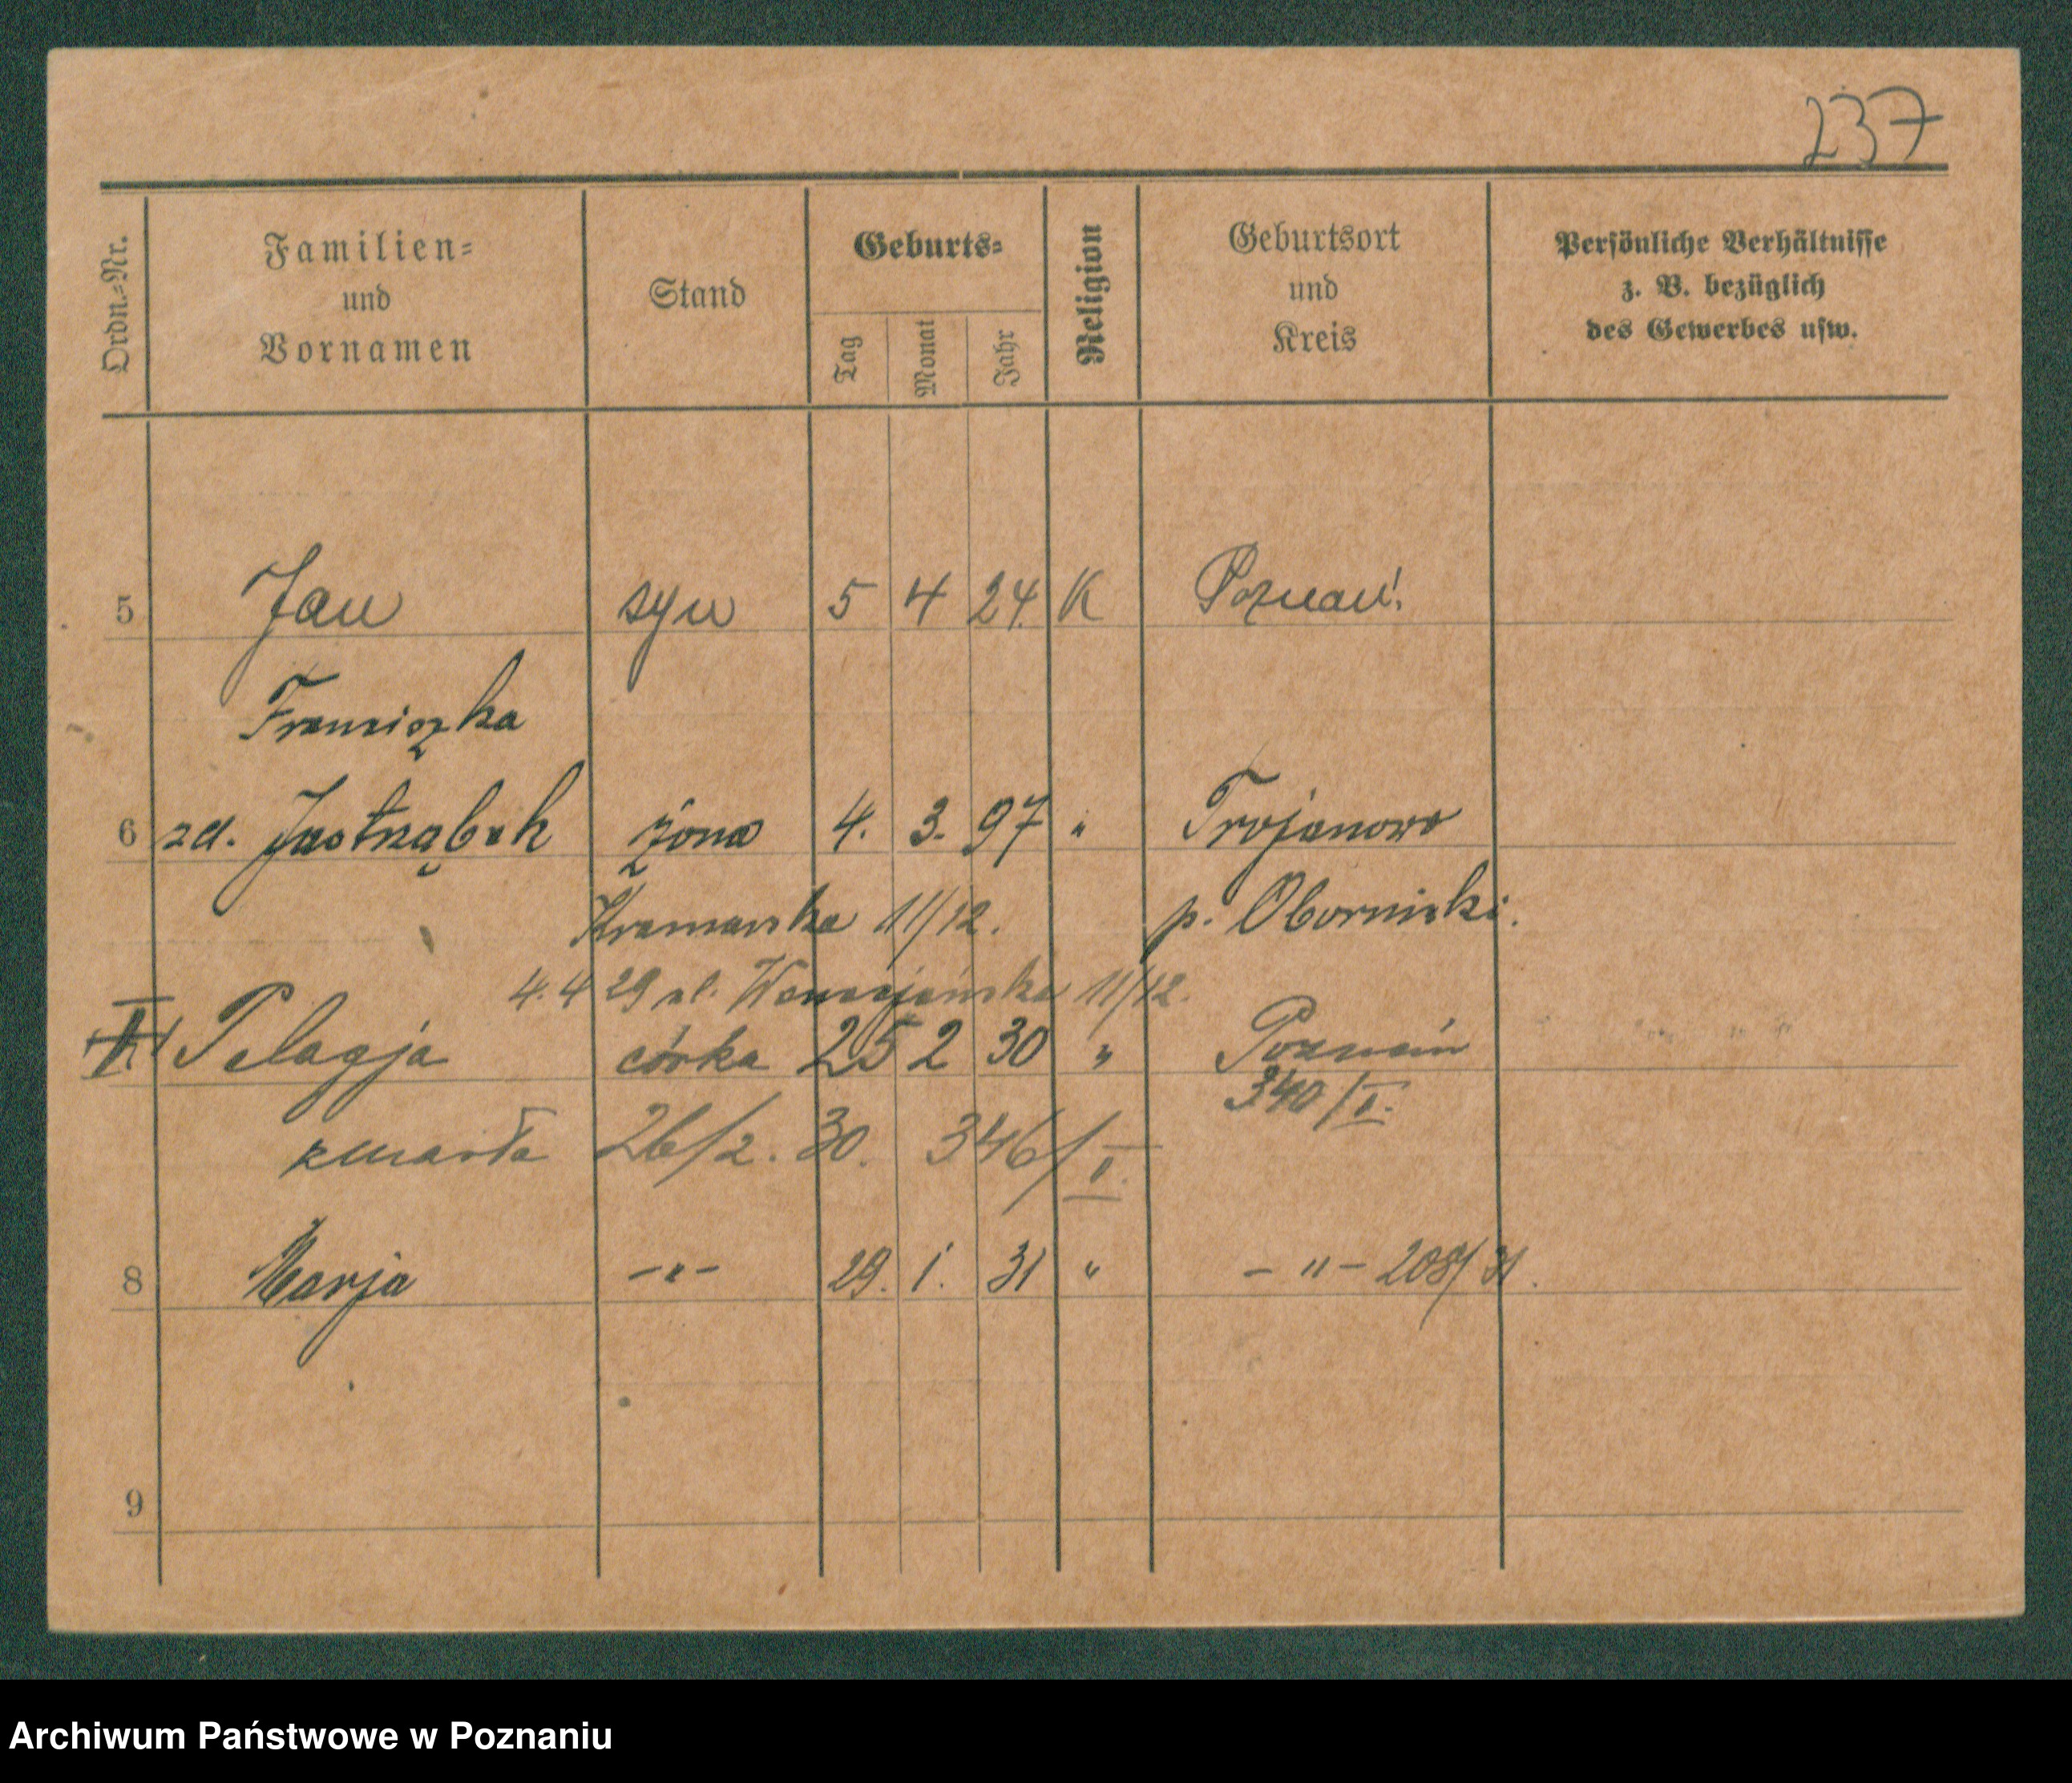 237
Ordn.-Nr.
Familien-
und
Vornamen
Stand
Geburts-
Tag
Monat
Jahr
Religion
Geburtsort
und
Kreis
Persönliche Verhältnisse
z. B. bezüglich
des Gewerbes usw.
5 Jan syn 5 4 24. K Poznań.
Franciszka
6 zd. Jastrząbek żona 4. 3. 97 " Trojanowo
Kramarska 11/12. p. Obornicki.
4.4 29 ul. 11/12.
Pelagja córka 25 2 30 " Poznań
340/II.
zmarła 26/2. 30. 346/II.
8 Marja -"- 29. 1. 31 " -"- 208/31.
9
Archiwum Państwowe w Poznaniu